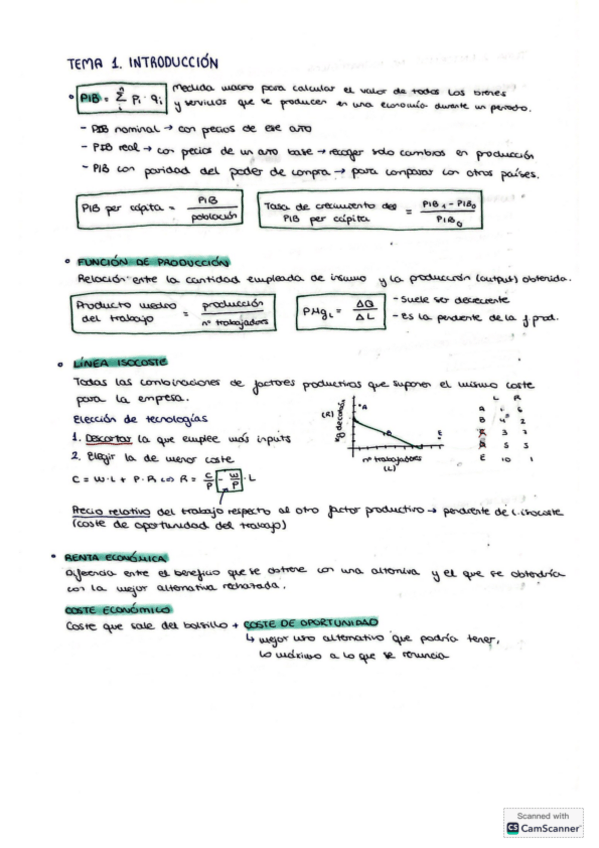 TEMA 1. INTRODUCCIÓN
• PIB = Σ Pi · qi Medida macro para calcular el valor de todos los bienes
n
i
y servicios que se producen en una economía durante un periodo.
- PIB nominal → con precios de ese año
- PIB real → con precios de un año base → recoger solo cambios en producción
- PIB con paridad del poder de compra → para comparar con otros países.
PIB per cápita = PIB / población
Tasa de crecimiento del PIB per cápita = PIB1 - PIB0 / PIB0
• FUNCIÓN DE PRODUCCIÓN
Relación entre la cantidad empleada de insumo y la producción (output) obtenida.
Producto medio del trabajo = producción / nº trabajadores
PMgL = ΔQ / ΔL
- Suele ser decreciente
- Es la pendiente de la f prod.
• LÍNEA ISOCOSTE
Todas las combinaciones de factores productivos que suponen el mismo coste
para la empresa.
Elección de tecnologías
1. Descartar la que emplee más inputs
2. Elegir la de menor coste
C = W·L + P·R ⇔ R = C/P - W/P · L
(R)
kg de carbón
A
B
E
nº trabajadores
(L)
L R
A 1 6
B 4 2
C 3 7
D 5 5
E 10 1
Precio relativo del trabajo respecto al otro factor productivo → pendiente de l. isocoste
(coste de oportunidad del trabajo)
• RENTA ECONÓMICA
Diferencia entre el beneficio que se obtiene con una alternativa y el que se obtendría
con la mejor alternativa rechazada.
COSTE ECONÓMICO
Coste que sale del bolsillo + COSTE DE OPORTUNIDAD
↳ mejor uso alternativo que podría tener,
lo máximo a lo que se renuncia
Scanned with
CS CamScanner